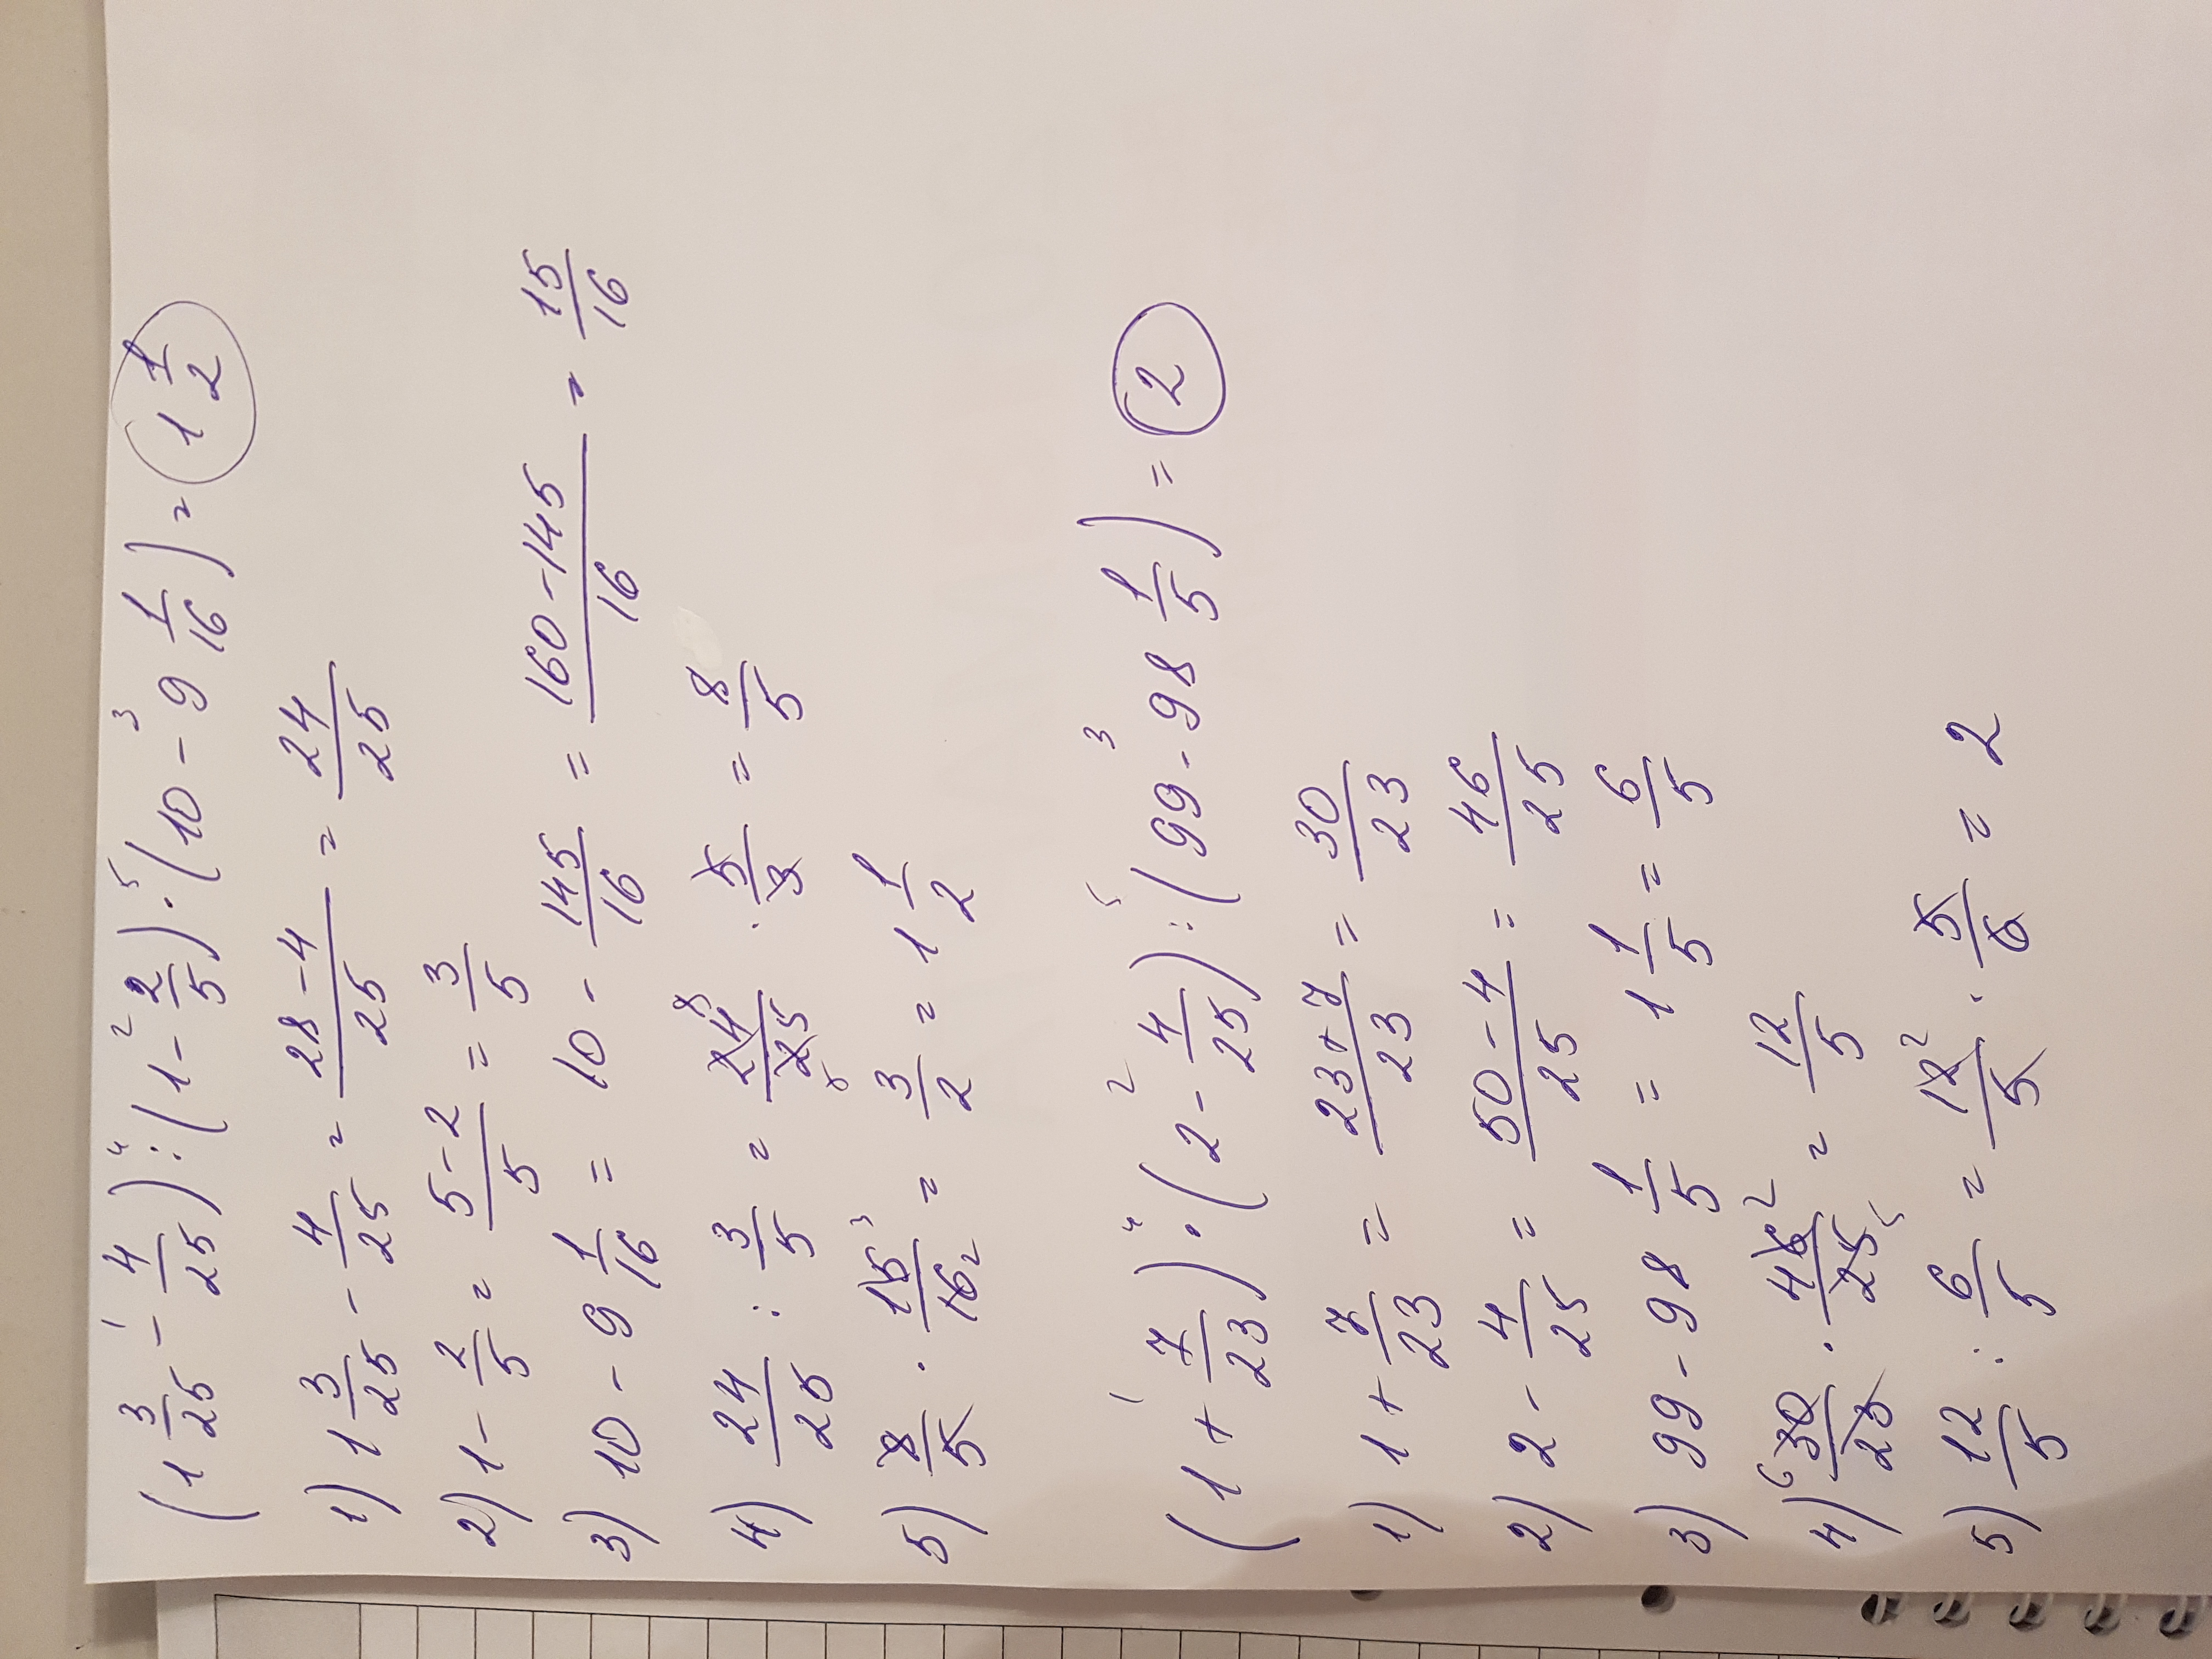 (1 3/25 - 4/25) : (1 - 2/5) · (10 - 9 1/16) = 1 1/2
1) 1 3/25 - 4/25 = 28-4/25 = 24/25
2) 1 - 2/5 = 5-2/5 = 3/5
3) 10 - 9 1/16 = 10 - 145/16 = 160-145/16 = 15/16
4) 24/25 : 3/5 = 24/25 · 5/3 = 8/5
5) 8/5 · 15/16 = 3/2 = 1 1/2
(1 + 7/23) · (2 - 4/25) : (99 - 98 1/5) = 2
1) 1 + 7/23 = 23+7/23 = 30/23
2) 2 - 4/25 = 50-4/25 = 46/25
3) 99 - 98 1/5 = 1 1/5 = 6/5
4) 30/23 · 46/25 = 12/5
5) 12/5 : 6/5 = 12/5 · 5/6 = 2